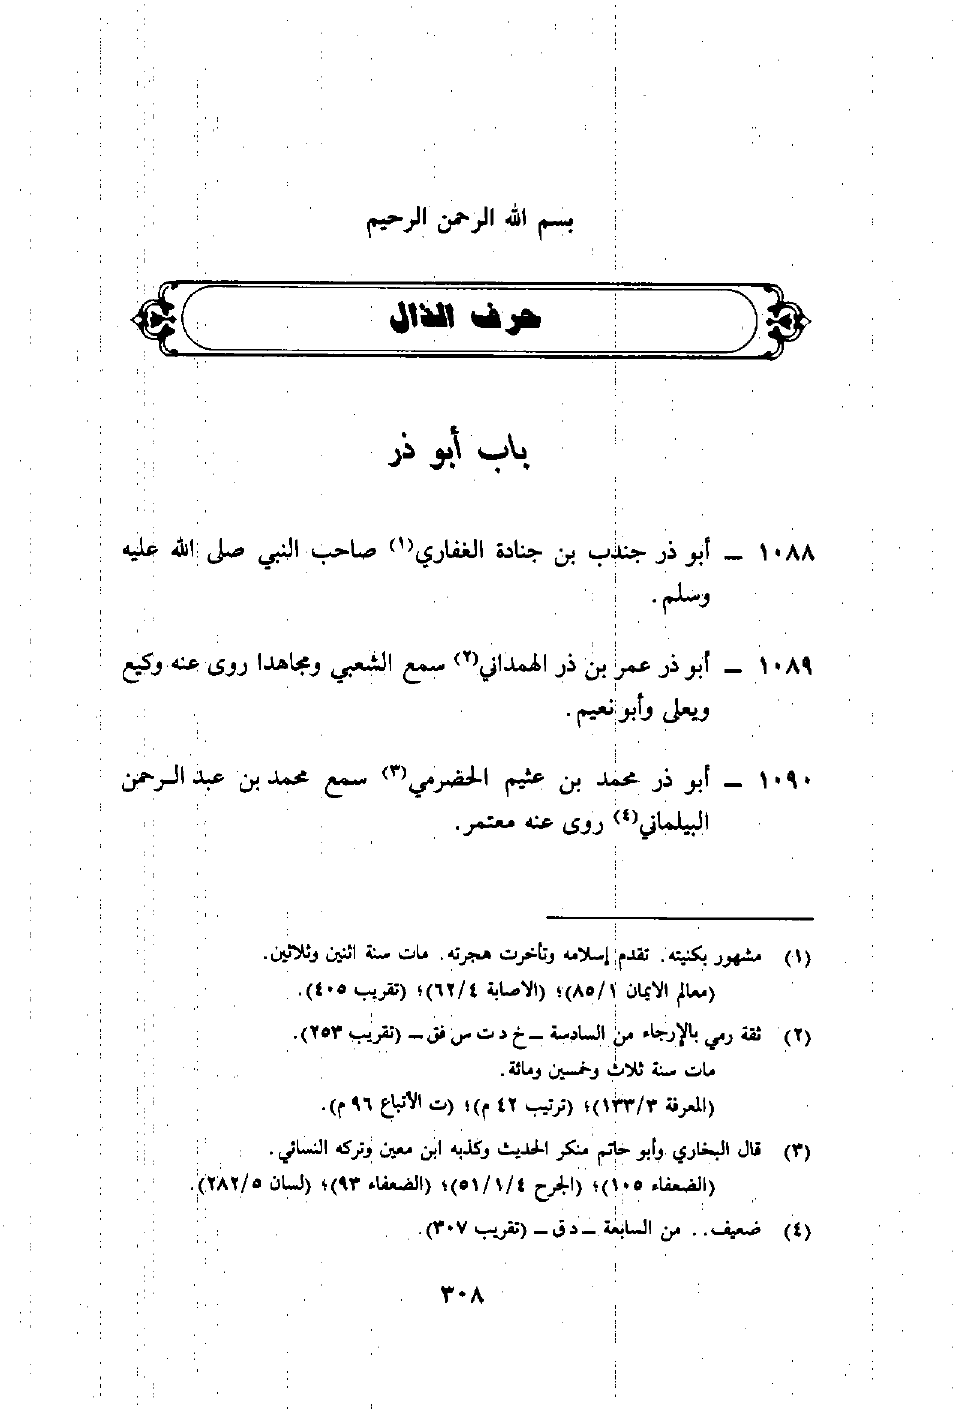 بسم الله الرحمن الرحيم
حرف الذال
باب أبو ذر
١٠٨٨ ــ أبو ذر جندب بن جنادة الغفاري(١) صاحب النبي صلى الله عليه
وسلم.
١٠٨٩ ــ أبو ذر عمر بن ذر الهمداني(٢) سمع الشعبي ومجاهدا روى عنه وكيع
ويعلى وأبو نعيم.
١٠٩٠ ــ أبو ذر محمد بن عثيم الحضرمي(٣) سمع محمد بن عبد الرحمن
البيلماني(٤) روى عنه معتمر.
(١) مشهور بكنيته. تقدم إسلامه وتأخرت هجرته. مات سنة اثنين وثلاثين.
(معالم الايمان ٨٥/١)؛ (الاصابة ٦٢/٤)؛ (تقريب ٤٠٥).
(٢) ثقة رمي بالإرجاء من السادسة ــ خ د ت س فق ــ (تقريب ٢٥٣).
مات سنة ثلاث وخمسين ومائة.
(المعرفة ١٣٣/٣)؛ (ترتيب ٤٢ م)؛ (ت الأتباع ٩٦ م).
(٣) قال البخاري وأبو حاتم منكر الحديث وكذبه ابن معين وتركه النسائي.
(الضعفاء ١٠٥)؛ (الجرح ٥١/١/٤)؛ (الضعفاء ٩٣)؛ (لسان ٢٨٢/٥).
(٤) ضعيف.. من السابعة ــ د ق ــ (تقريب ٣٠٧).
٣٠٨